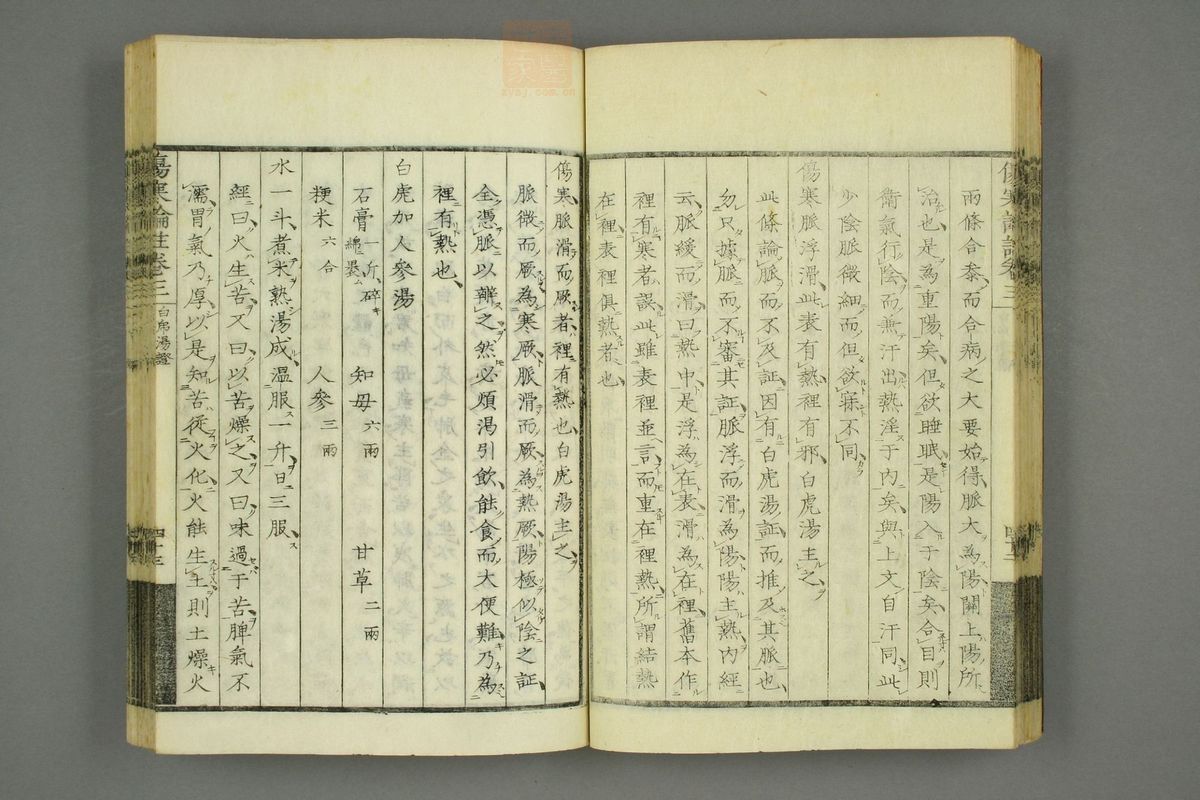 傷寒論註卷三
兩條合叅而合病之大要始得脈大為陽關上陽所
治也是為重陽矣但欲睡眠是陽入于陰矣合目則
衛氣行陰而兼汗出熱淫于內矣與上文自汗同此
少陰脈微細而但欲寐不同
傷寒脈浮滑此表有熱裡有邪白虎湯主之
此條論脈而不及証因有白虎湯証而推及其脈也
勿只據脈而不審其証脈浮而滑為陽陽主熱內經
云脈緩而滑曰熱中是浮為在表滑為在裡舊本作
裡有寒者誤此雖表裡並言而重在裡熱所謂結熱
在裡表裡俱熱者也
傷寒脈滑而厥者裡有熱也白虎湯主之
脈微而厥為寒厥脈滑而厥為熱厥陽極似陰之証
全憑脈以辨之然必煩渴引飲能食而大便難乃為
裡有熱也
白虎加人參湯
石膏 一斤碎綿裹 知母 六兩 甘草 二兩
粳米 六合 人參 三兩
水一斗煮米熟湯成溫服一升日三服
經曰火生苦又曰以苦燥之又曰味過于苦脾氣不
濡胃氣乃厚以是知苦從火化火能生土則土燥火
傷寒論註卷三 白虎湯證 四十三